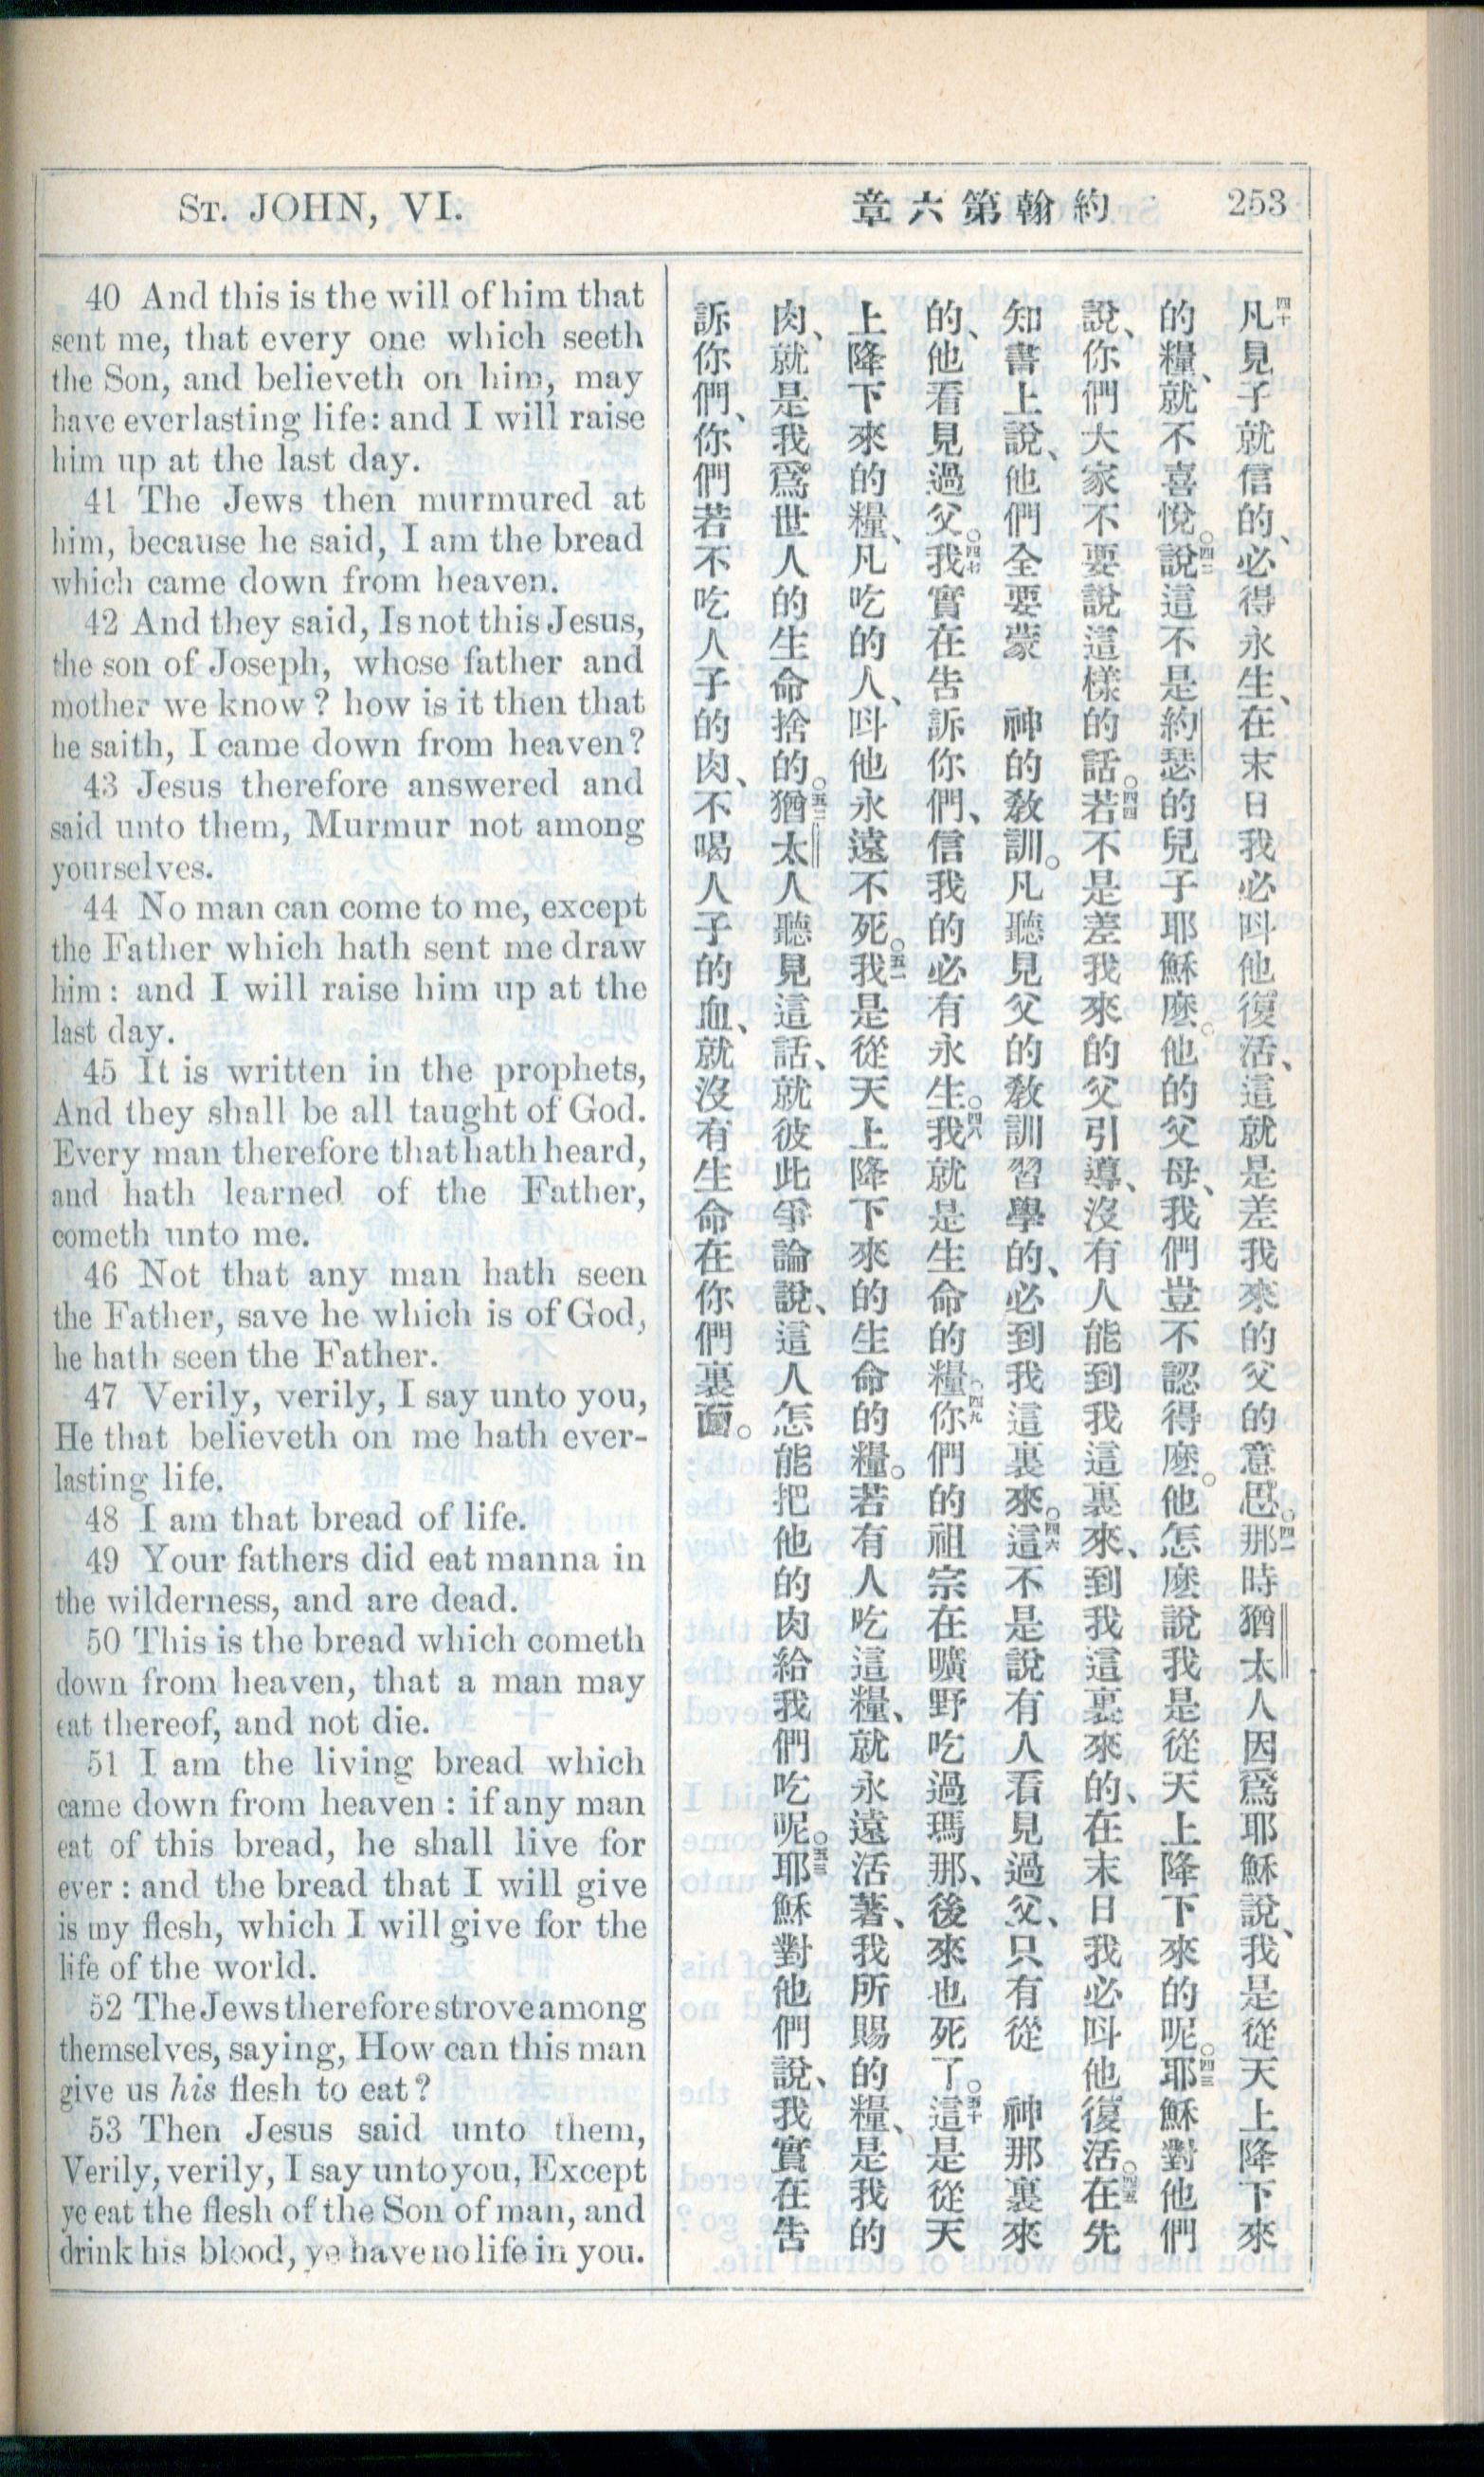 St. JOHN, VI.
約翰第六章
253
40 And this is the will of him that
sent me, that every one which seeth
the Son, and believeth on him, may
have everlasting life: and I will raise
him up at the last day.
41 The Jews then murmured at
him, because he said, I am the bread
which came down from heaven.
42 And they said, Is not this Jesus,
the son of Joseph, whose father and
mother we know? how is it then that
he saith, I came down from heaven?
43 Jesus therefore answered and
said unto them, Murmur not among
yourselves.
44 No man can come to me, except
the Father which hath sent me draw
him: and I will raise him up at the
last day.
45 It is written in the prophets,
And they shall be all taught of God.
Every man therefore that hath heard,
and hath learned of the Father,
cometh unto me.
46 Not that any man hath seen
the Father, save he which is of God,
he hath seen the Father.
47 Verily, verily, I say unto you,
He that believeth on me hath ever-
lasting life.
48 I am that bread of life.
49 Your fathers did eat manna in
the wilderness, and are dead.
50 This is the bread which cometh
down from heaven, that a man may
eat thereof, and not die.
51 I am the living bread which
came down from heaven: if any man
eat of this bread, he shall live for
ever: and the bread that I will give
is my flesh, which I will give for the
life of the world.
52 The Jews therefore strove among
themselves, saying, How can this man
give us his flesh to eat?
53 Then Jesus said unto them,
Verily, verily, I say unto you, Except
ye eat the flesh of the Son of man, and
drink his blood, ye have no life in you.
四十凡見子就信的、必得永生、在末日我必呌他復活、這就是差我來的父的意思。○四一那時猶太人因爲耶穌說、我是從天上降下來
的糧、就不喜悅。○四二說這不是約瑟的兒子耶穌麽。他的父母、我們豈不認得麽。他怎麽說我是從天上降下來的呢。○四三耶穌對他們
說、你們大家不要說這樣的話。○四四若不是差我來的父引導、沒有人能到我這裏來、到我這裏來的、在末日我必呌他復活。○四五在先
知書上說、他們全要蒙 神的敎訓。凡聽見父的敎訓習學的、必到我這裏來。○四六這不是說有人看見過父、只有從 神那裏來
的、他看見過父。○四七我實在告訴你們、信我的必有永生。○四八我就是生命的糧。○四九你們的祖宗在曠野吃過瑪那、後來也死了。○五十這是從天
上降下來的糧、凡吃的人、呌他永遠不死。○五一我是從天上降下來的生命的糧。若有人吃這糧、就永遠活著、我所賜的糧、是我的
肉、就是我爲世人的生命捨的。○五二猶太人聽見這話、就彼此爭論說、這人怎能把他的肉給我們吃呢。○五三耶穌對他們說、我實在告
訴你們、你們若不吃人子的肉、不喝人子的血、就沒有生命在你們裏面。